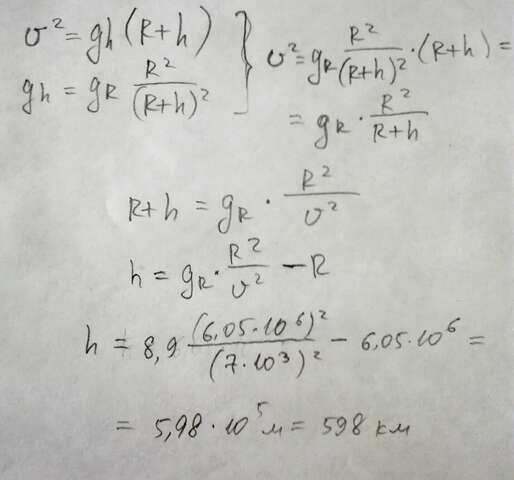 v² = g_h (R+h)
g_h = g_R R²/(R+h)²
} v² = g_R R²/(R+h)² · (R+h) =
= g_R · R²/(R+h)
R+h = g_R · R²/v²
h = g_R · R²/v² − R
h = 8,9 (6,05·10⁶)²/(7·10³)² − 6,05·10⁶ =
= 5,98 · 10⁵ м = 598 км